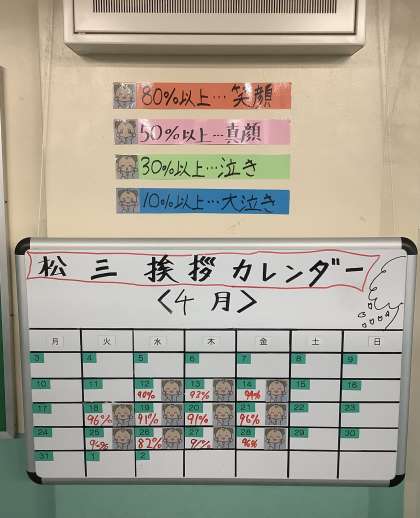 80%以上…笑顔
50%以上…真顔
30%以上…泣き
10%以上…大泣き
松三 挨拶カレンダー
<4月>
月 火 水 木 金 土 日
3 4 5 6 7 8 9
10 11 12 13 14 15 16
90% 93% 94%
17 18 19 20 21 22 23
96% 91% 91% 96%
24 25 26 27 28 29 30
82% 96%
31 1 2